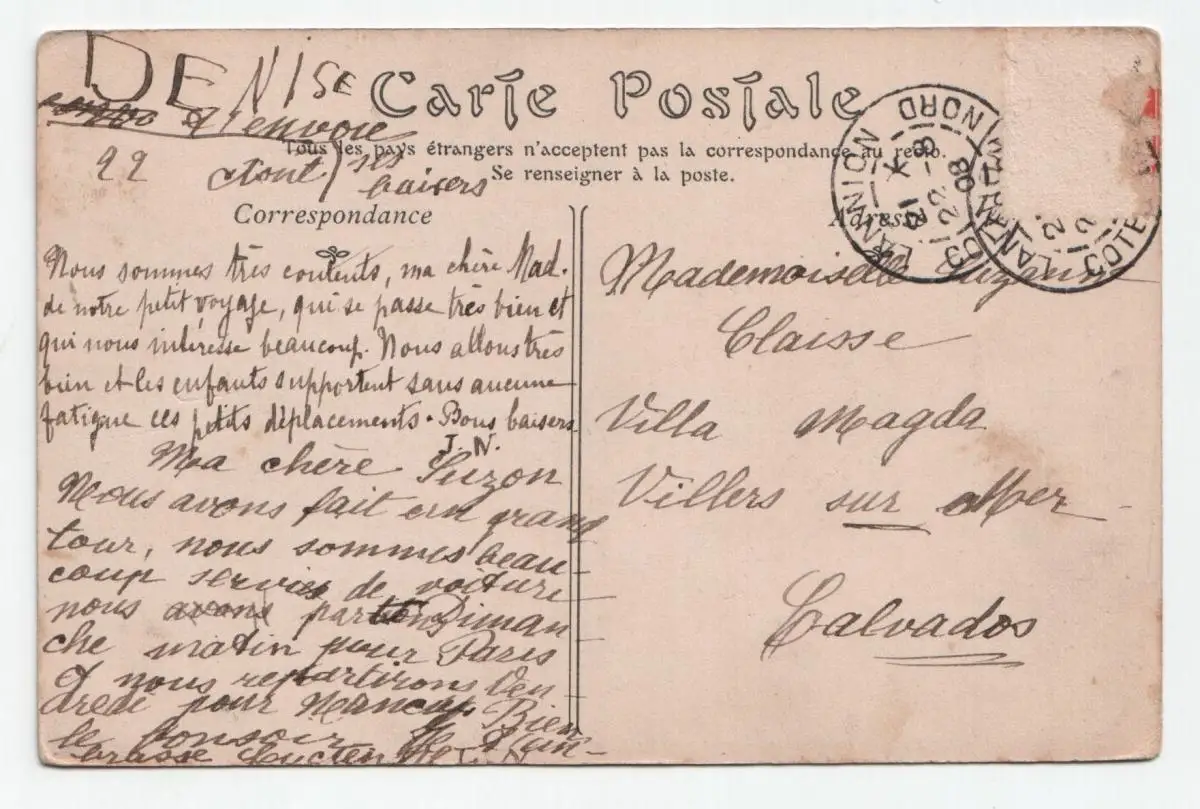 DENISE
t'envoie
22
tout ses
baisers
Carte Postale
Tous les pays étrangers n'acceptent pas la correspondance au recto.
Se renseigner à la poste.
Correspondance
Nous sommes très contents, ma chère Mad.
de notre petit voyage, qui se passe très bien et
qui nous intéresse beaucoup. Nous allons très
bien et les enfants supportent sans aucune
fatigue ces petits déplacements. Bons baisers
J. N.
Ma chère Suzon
Nous avons fait un grand
tour, nous sommes beau-
coup de voiture
nous partons Diman-
che matin pour Paris
et nous repartirons Ven-
dredi pour Bien
le bonsoir
Adresse
Mademoiselle
Claisse
Villa Magda
Villers sur Mer
Calvados
LANNION
COTES DU NORD
21
22 -8
08
LAN
COTE